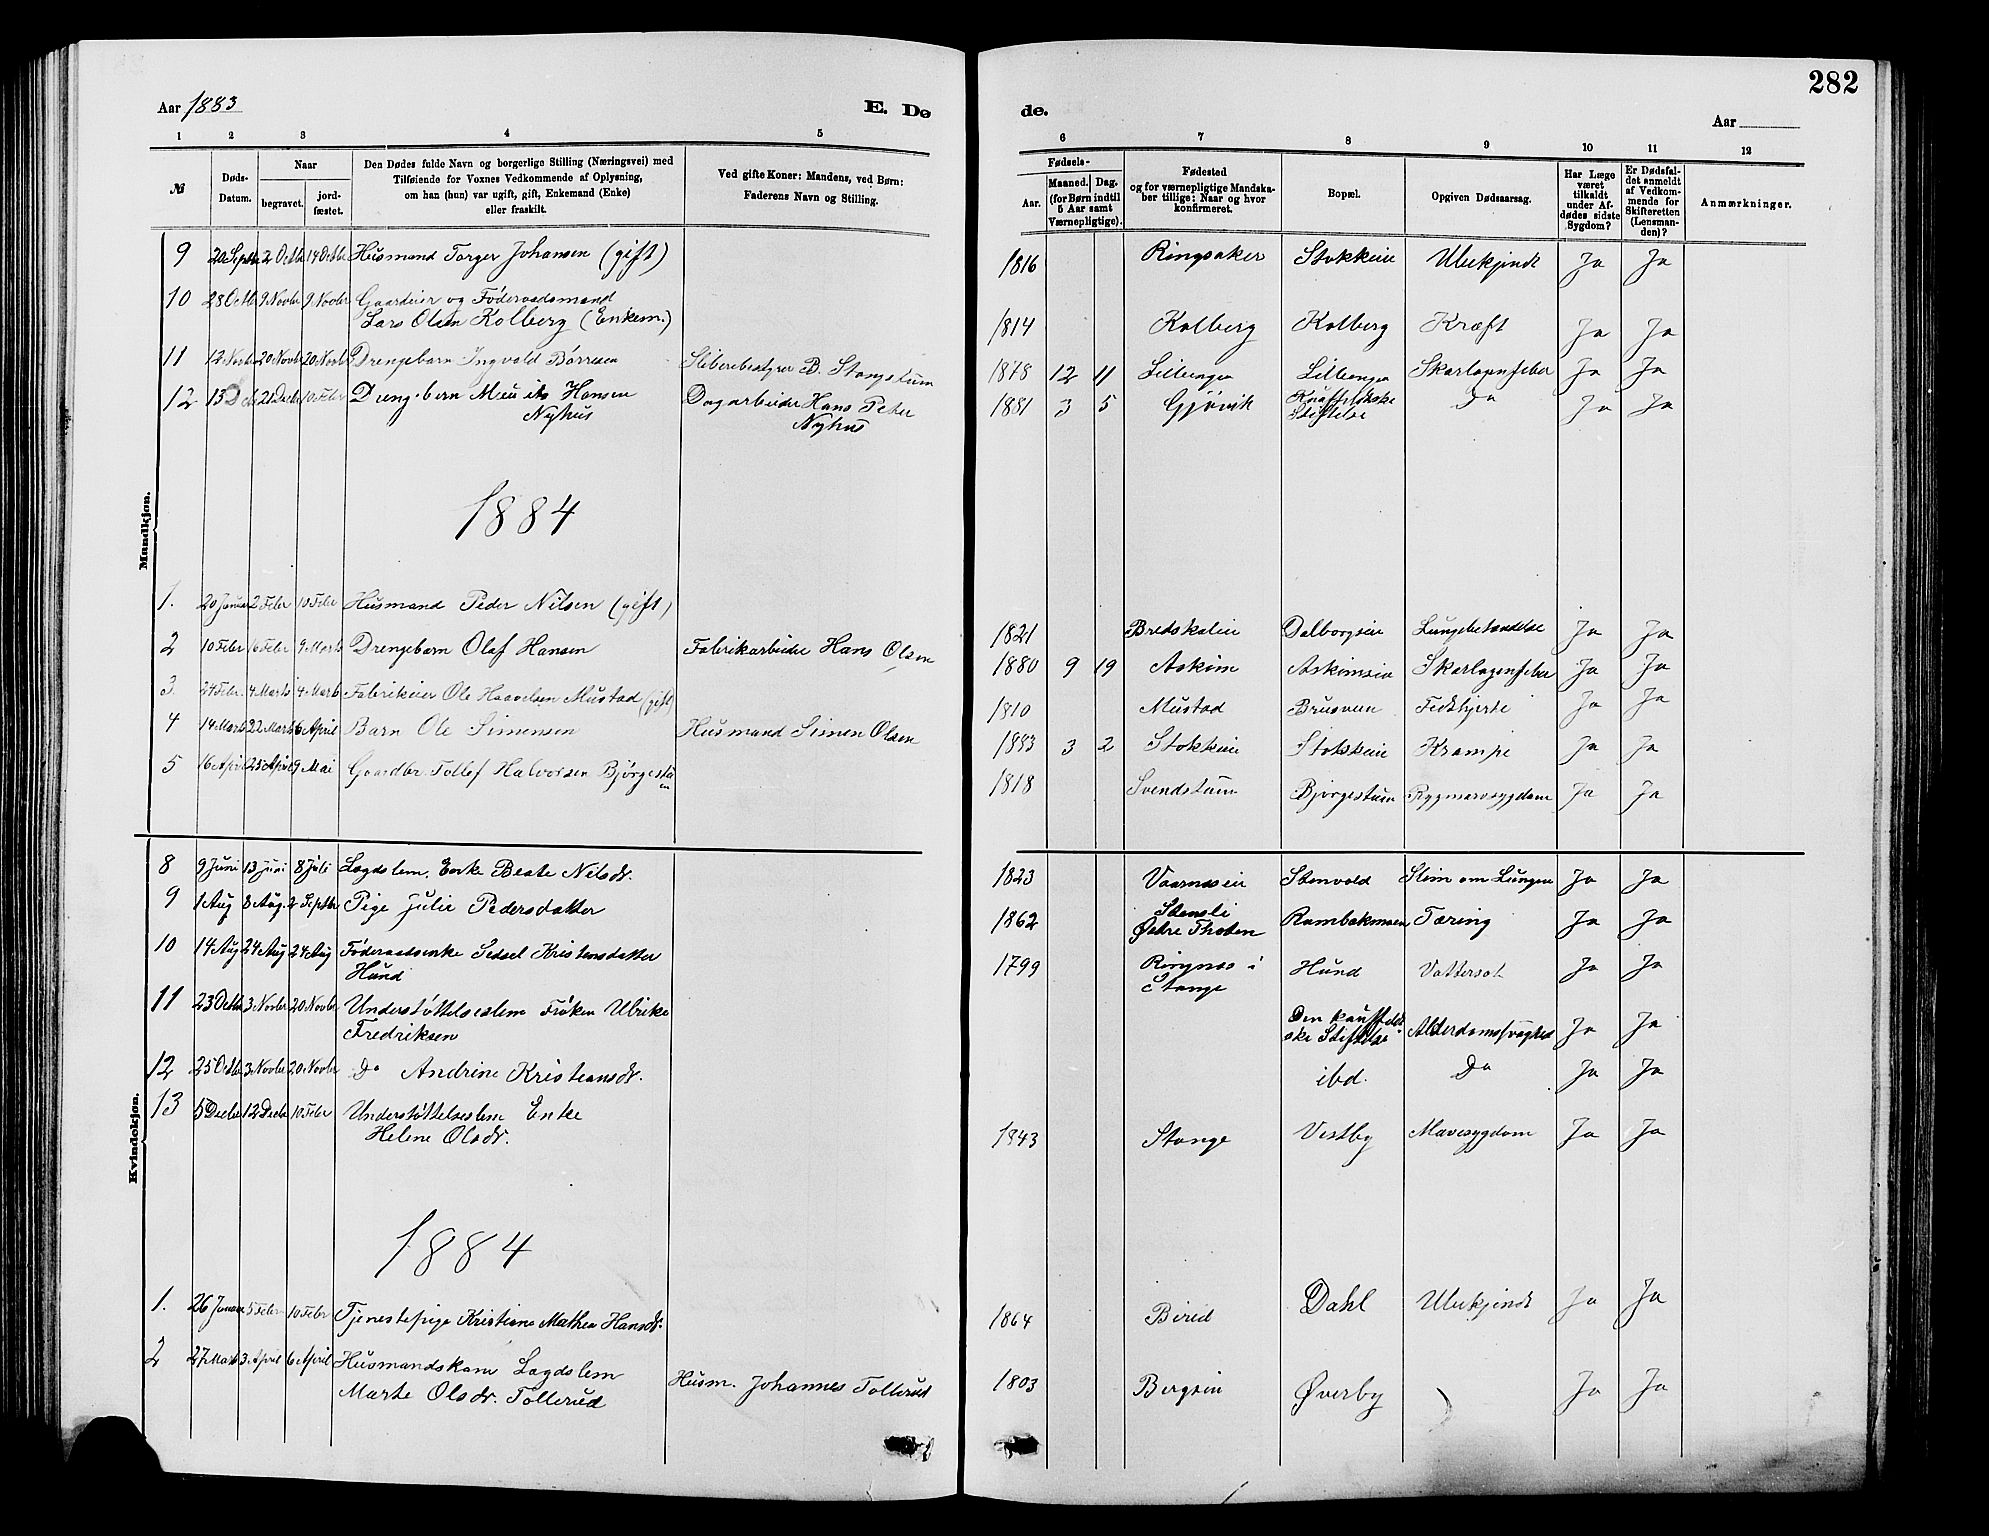 282
Aar 1883
E. Dø
de.
Aar
1 2 3 4 5 6 7 8 9 10 11 12
№
Døds-Datum.
Naar
begravet.
jord-fæstet.
Den Dødes fulde Navn og borgerlige Stilling (Næringsvei) med
Tilføiende for Voxnes Vedkommende af Oplysning,
om han (hun) var ugift, gift, Enkemand (Enke)
eller fraskilt.
Ved gifte Koner: Mandens, ved Børn:
Faderens Navn og Stilling.
Fødsels-
Aar.
Maaned. Dag.
(for Børn indtil
5 Aar samt
Værnepligtige).
Fødested
og for værnepligtige Mandska-
ber tillige: Naar og hvor
konfirmeret.
Bopæl.
Opgiven Dødsaarsag.
Har Læge
været
tilkaldt
under Af-
dødes sidste
Sygdom?
Er Dødsfal-
det anmeldt
af Vedkom-
mende for
Skifteretten
(Lensman-
den)?
Anmærkninger.
Mandkjøn.
9 20 Septbr 2 Octbr 14 Octbr Husmand Torger Johansen (gift) 1816 Ringsaker Stokkeie Ubekjendt Ja Ja
10 28 Octb 9 Novbr 9 Novbr Gaardeier og Føderaadsmand
Lars Olsen Kolberg (Enkem.) 1814 Kolberg Kolberg Kræft Ja Ja
11 12 Novbr 20 Novbr 20 Novbr Drengebarn Ingvald Børresen Sliberibestyrer B. Stangstuen 1878 12 11 Lillengen Lillengen Skarlagensfeber Ja Ja
12 13 Dcb 21 Decbr 10 Febr Drengebarn Hansen
Nyhus Dagarbeider Hans Peter
Nyhus 1881 3 5 Gjøvik Stiftelse Do Ja Ja
1884
1. 20 Januar 2 Febr 10 Febr Husmand Peder Nilsen (gift) 1821 Bredskaleie Dalborgseie Lungebetændelse Ja Ja
2 10 Febr 16 Febr 9 Marts Drengebarn Olaf Hansen Fabrikarbeider Hans Olsen 1880 9 19 Askim Askimseie Skarlagensfeber Ja Ja
3. 24 Febr. 4 Marts 4 Marts Fabrikeier Ole Haavelsen Mustad (gift) 1810 Mustad Brusveen Fedthjerte Ja Ja
4 14 Marts 22 Marts 6 April Barn Ole Simensen Husmand Simen Olsen 1883 3 2 Stokkeie Stokkeie Krampe Ja Ja
5 16 April 25 April 9 Mai Gaardbr. Tollef Halvorsen Bjørgestu
en 1818 Svendstuen Bjørgestuen Rygmarvsygdom Ja Ja
Kvindekjøn.
8 9 Juni 13 Juni 8 Juli Lægdslem. Enke Beate Nilsdr. 1823 Vaarnæseie Stenvold Slim om Lungene Ja Ja
9 1 Aug 8 Aug. 2 Septbr Pige Julie Pedersdatter 1862 Stensli
Østre Thoten Rambekmoen Tæring Ja Ja
10 14 Aug 24 Aug 24 Aug Føderaadsenke Sidsel Kristensdatter
Hund 1799 Ringnæs i
Stange Hund Vattersot Ja Ja
11 23 Octbr 3 Novbr 20 Novbr Understøttelseslem Frøken Ulrike
Fredriksen Den kauffeldt
ske Stiftelse Alderdomssvaghed Ja Ja
12 25 Octbr 3 Novbr 20 Novbr Do Andrine Kristiansdr. ibd. Do Ja Ja
13 5 Decbr 12 Decbr 10 Febr Understøttelseslem Enke
Helene Olsdr. 1843 Stange Vestby Mavesygdom Ja Ja
1884
1. 26 Januar 5 Febr 10 Febr Tjenestepige Kristiane Mathea Hansdr. 1864 Birid Dahl Ubekjendt Ja Ja
2 27 Marts 3 April 6 April Husmandskone Lægdslem
Marte Olsdr. Tollerud Husm. Johannes Tollerud 1803 Bergseie Øverby Ja Ja